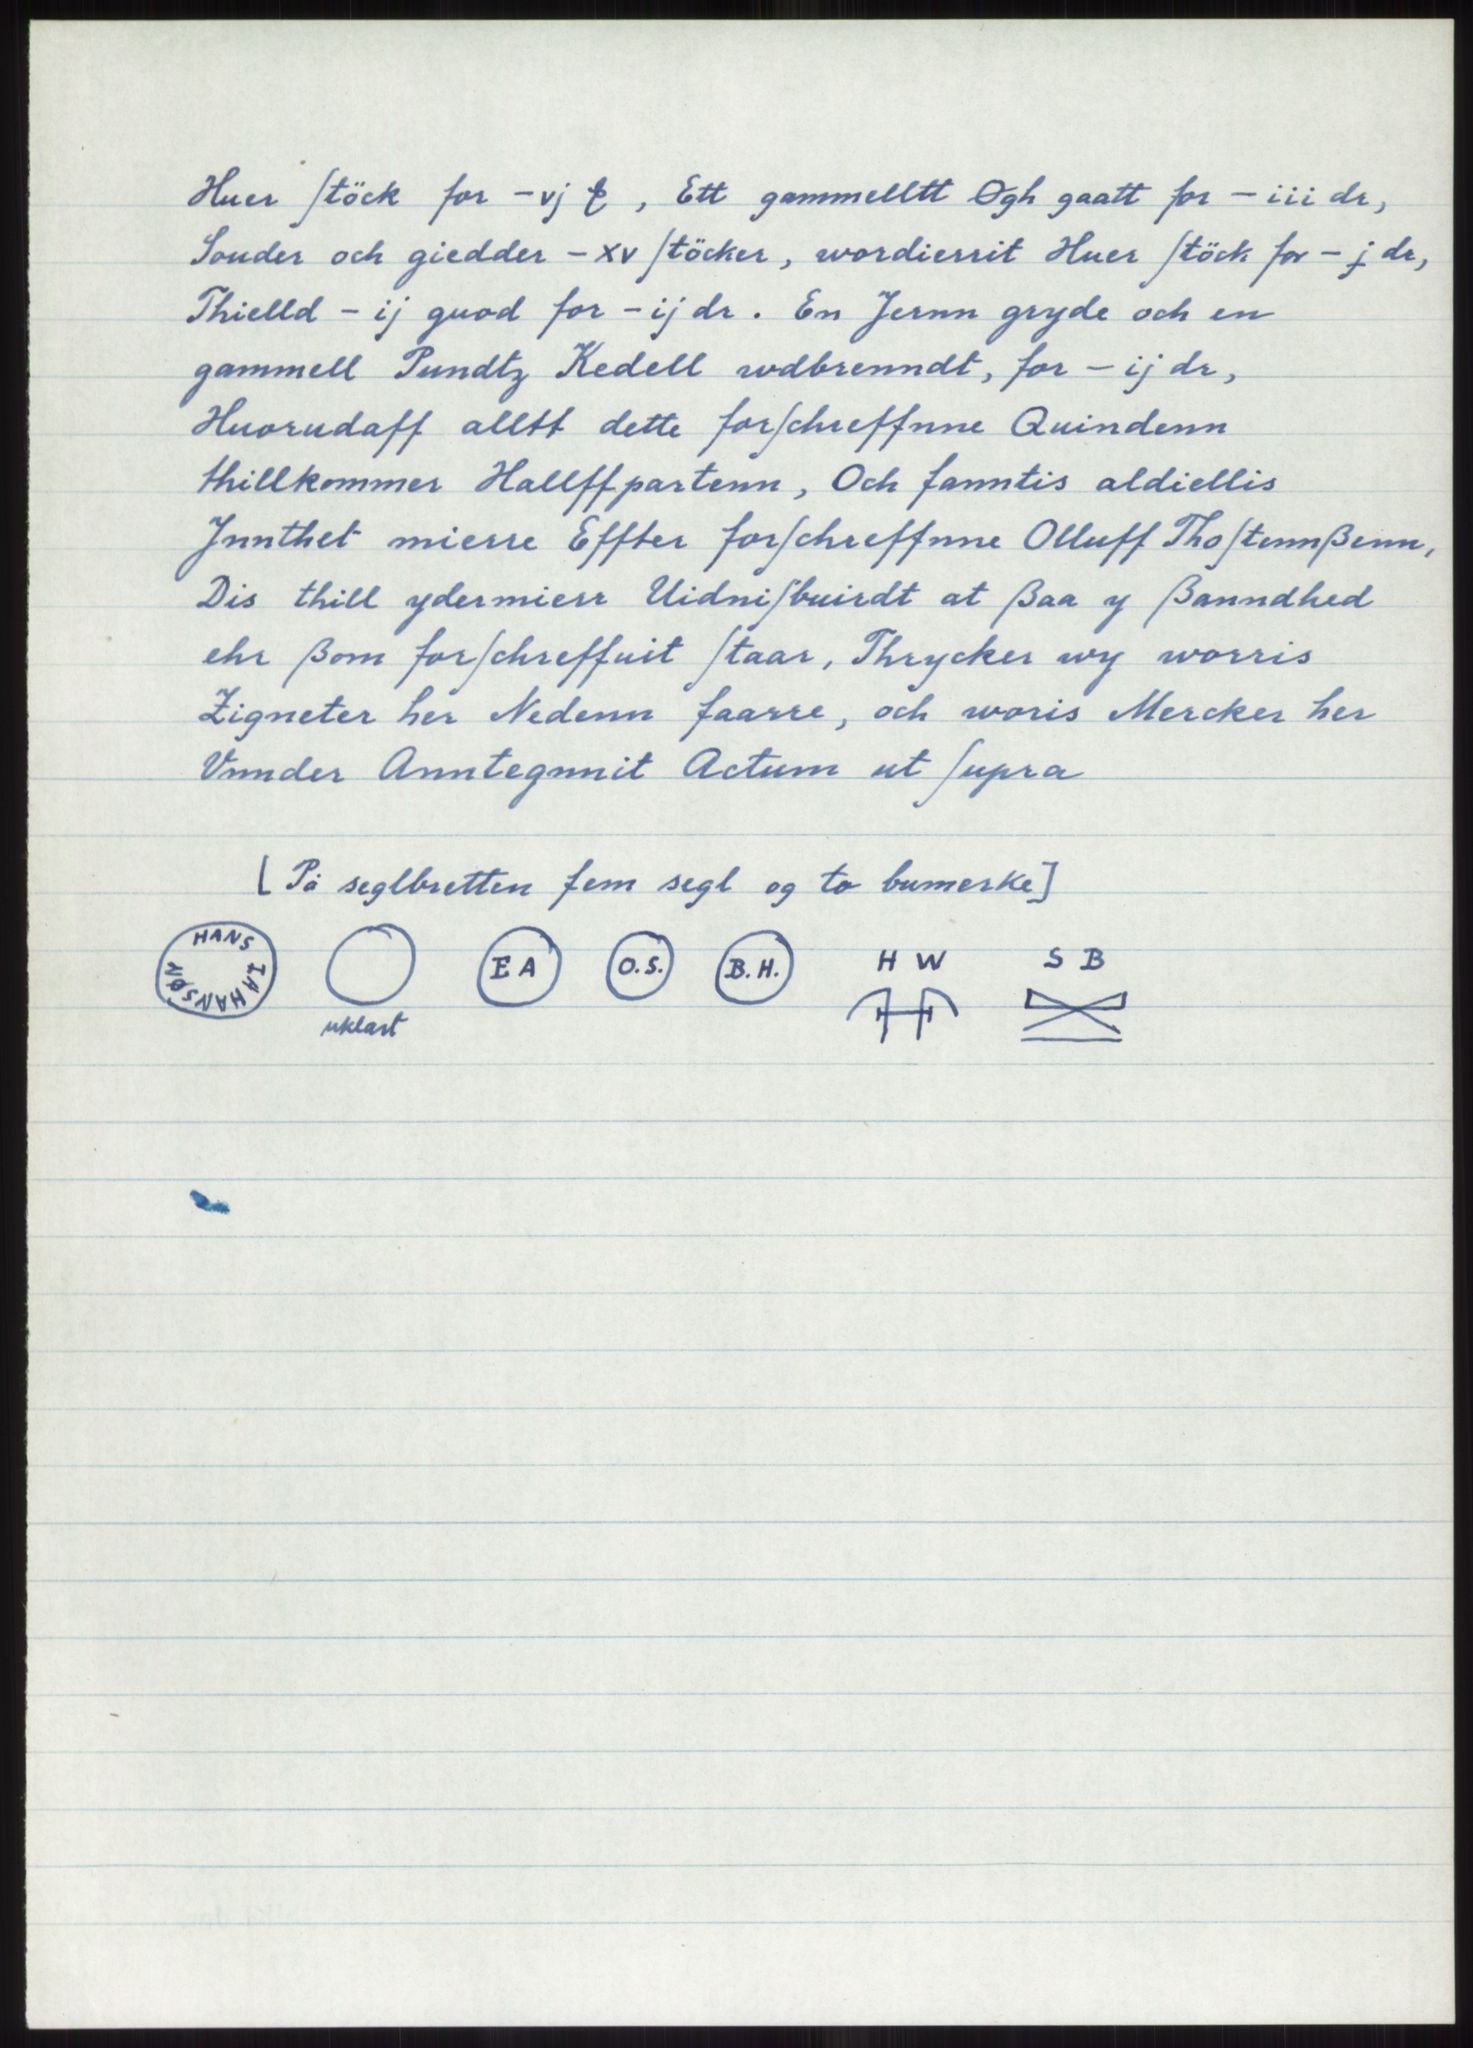 Huer ſtöck for - vj ꝑ, Ett gammelltt Øgh gaatt for - iii dr,
Souder och giedder - xv ſtöcker, wordierrit Huer ſtöck for - j dr,
Thielld - ij guod for - ij dr. En Jernn gryde och en
gammell Pundtz Kedell wdbrenndt, for - ij dr,
Huorudaff alltt dette forſchreffnne Quindenn
thillkommer Hallffpartenn, Och fanntis aldiellis
Jnnthet mierre Effter forſchreffnne Olluff Thoſtennßenn,
Dis thill ydermierr Uidniſbuirdt at ßaa y ßanndhed
ehr ßom forſchreffuit ſtaar, Thrycker wy worris
Zigneter her Nedenn faarre, och woris Mercker her
Vnnder Anntegnnit Actum ut ſupra
[På seglbretten fem segl og to bumerke]
HANS IAHANSØN
uklart
E A
O.S.
B.H.
H W
S B